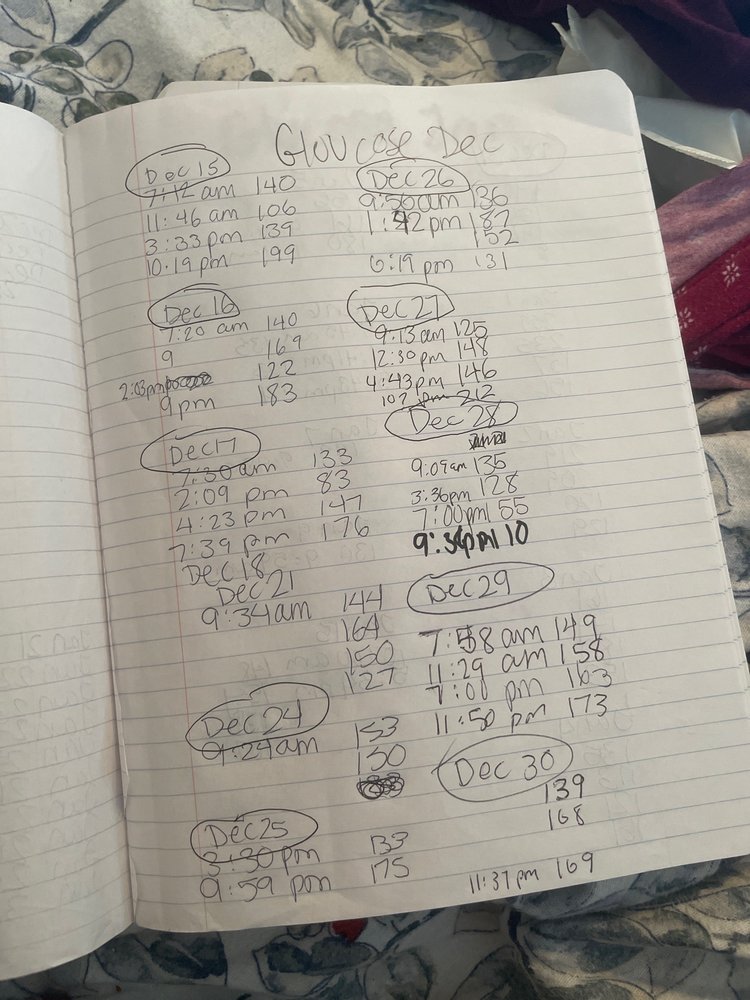 Gloucose Dec
Dec 15
7:12 am 140
11:46 am 106
3:33 pm 139
10:19 pm 199
Dec 16
7:20 am 140
9 169
2:03pm 122
9pm 183
Dec 17
7:30 am 133
2:09 pm 83
4:23 pm 147
7:39 pm 176
Dec 18
Dec 21
9:34 am 144
164
150
127
Dec 24
9:24am 153
130
Dec 25
3:30 pm 133
9:59 pm 175
Dec 26
9:56am 136
pm 187
152
6:19 pm 131
Dec 27
9:13 am 125
12:30 pm 148
4:43pm 146
pm 212
Dec 28
9:09am 135
3:36pm 128
7:00pm 155
Dec 29
7:58 am 149
11:29 am 158
7:00 pm 163
11:50 pm 173
Dec 30
139
168
11:37pm 169